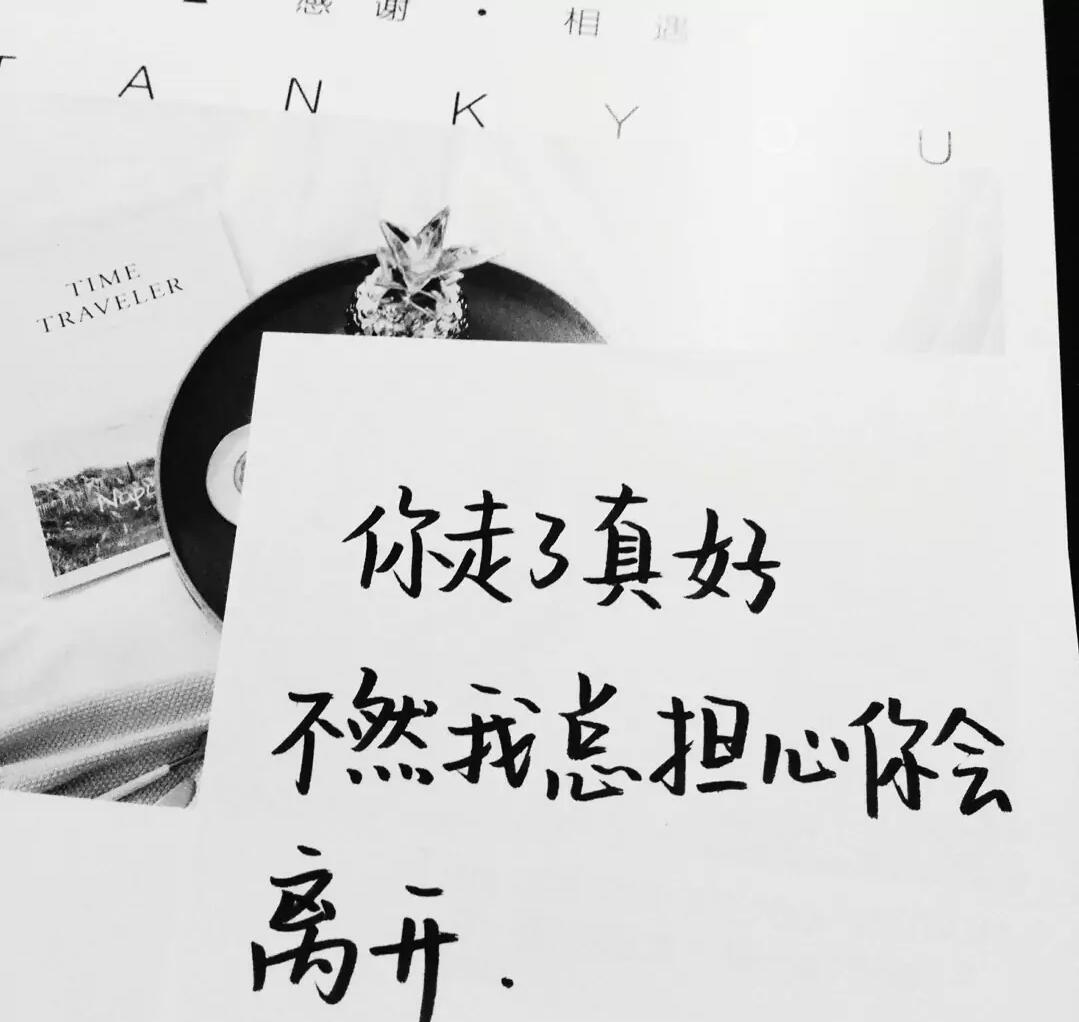 感谢·相遇
TANKYOU
TIME
TRAVELER
你走了真好
不然我总担心你会
离开.